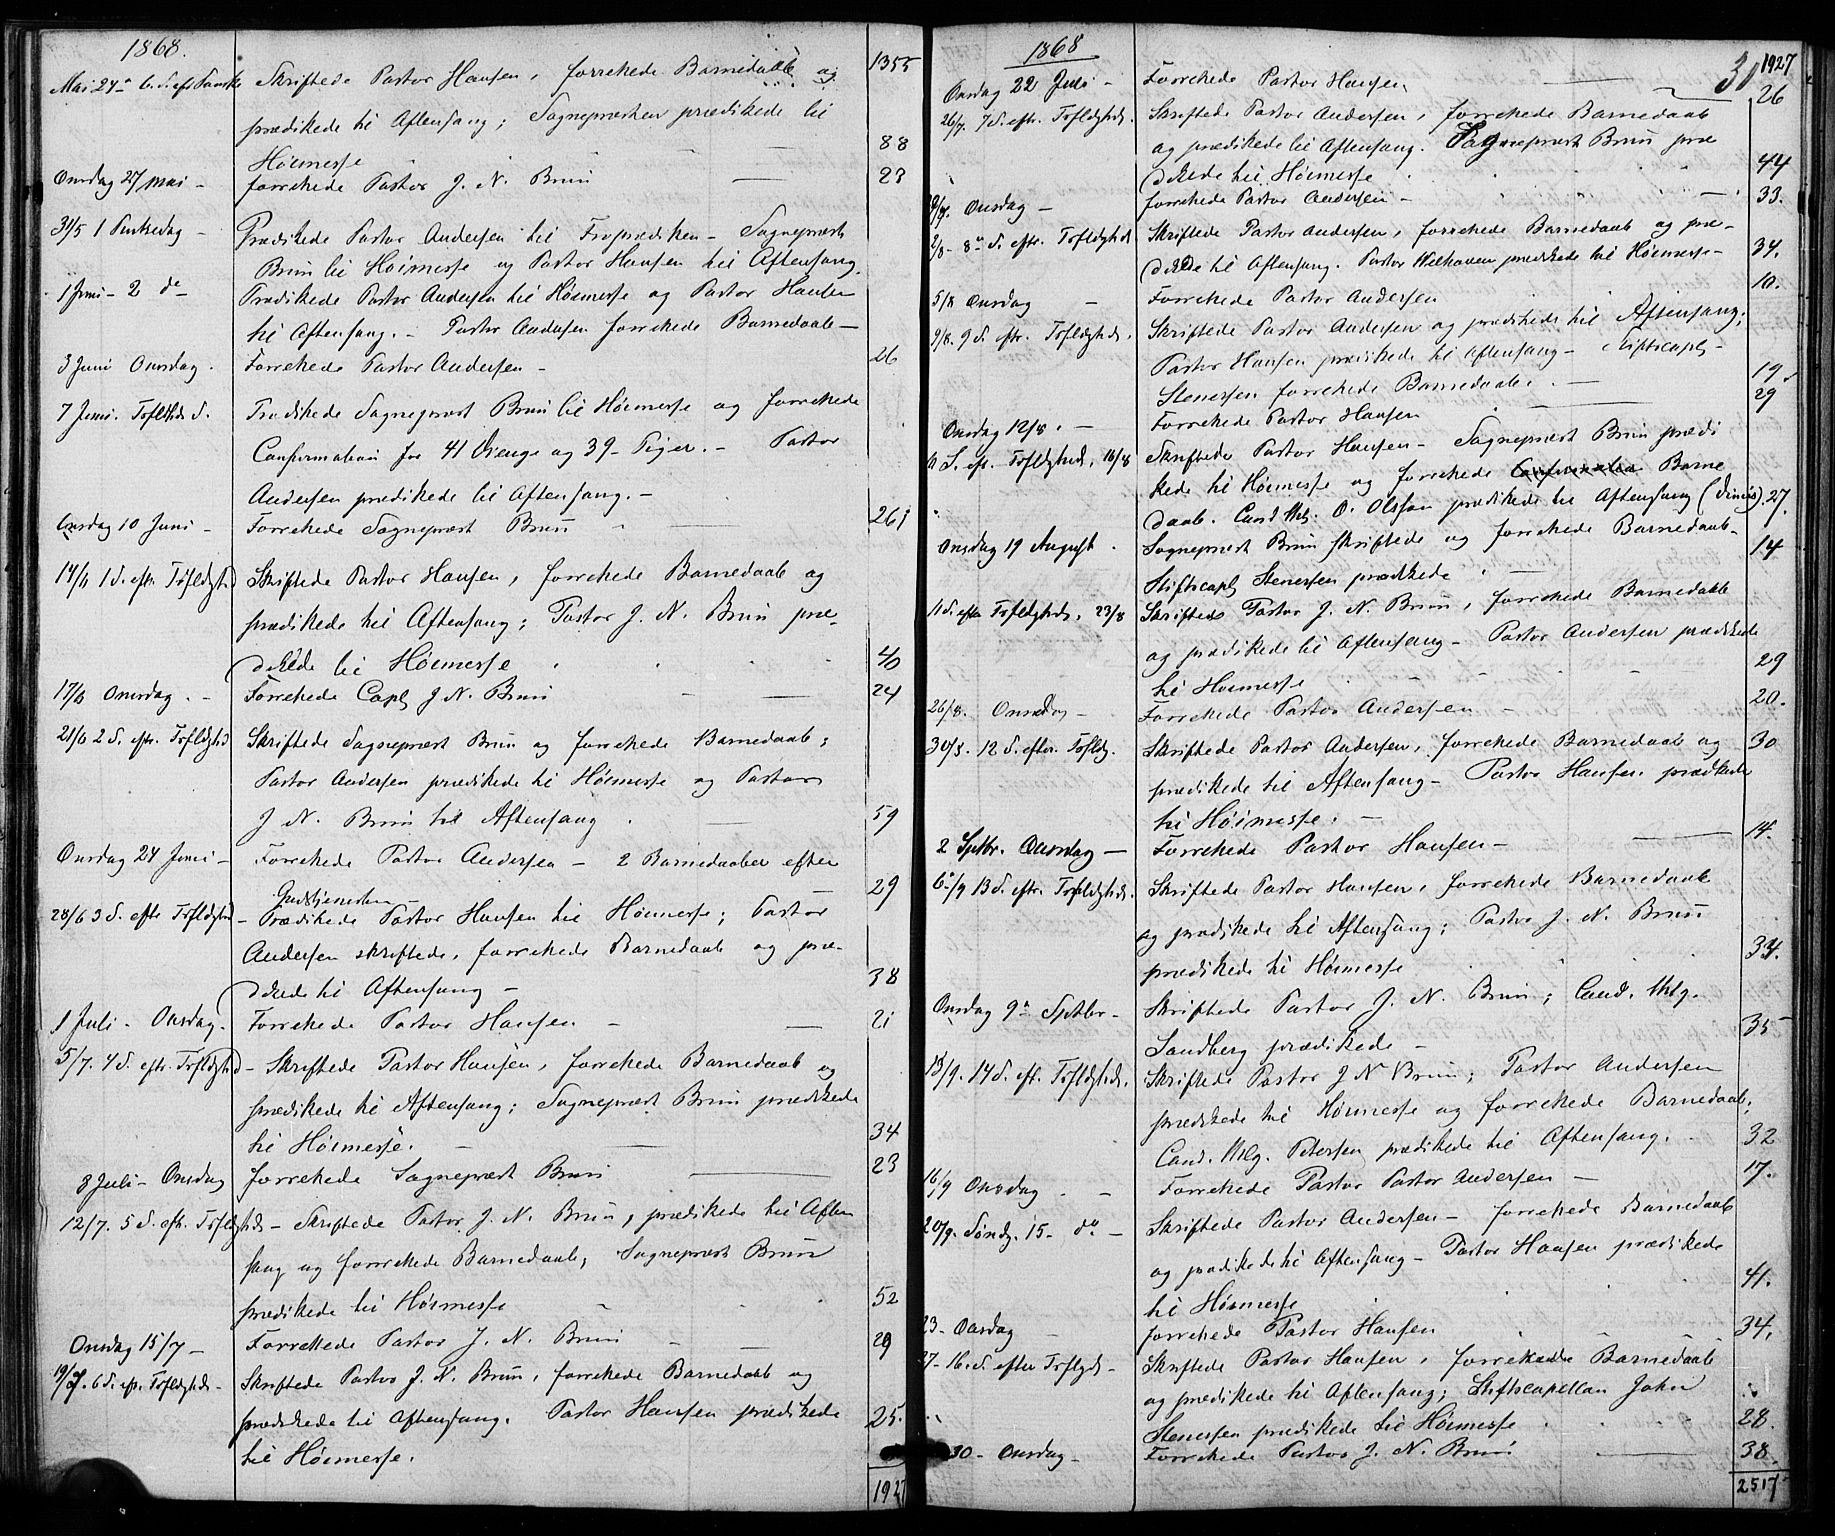 1868.
1355
Mai 24de 6. S. eft Paaske Skriftede Pastor Hansen, forrettede Barnedaab og
prædikede til Aftensang; Sognepræsten prædikede til
Høimesse 88
Onsdag 27 Mai - forrettede Pastor J. N. Brun — 23
31/5 1 Pintsedag - Prædikede Pastor Andersen til Froprædiken - Sognepræst
Brun til Høimesse og Pastor Hansen til Aftensang.
1 Juni - 2 do Prædikede Pastor Andersen til Høimesse og Pastor Hansen
til Aftensang. - Pastor Andersen forrettede Barnedaab —
3 Juni Onsdag. Forrettede Pastor Andersen - 26
7 Juni. Trfltghds S. Prædikede Sognepræst Brun til Høimesse og forrettede
Confirmation for 41 Drenge og 39 - Piger. - Pastor
Andersen prædikede til Aftensang. -
Onsdag 10 Juni - Forrettede Sognepræst Brun — 261
14/6 1 S. eftr. Trfldghd Skriftede Pastor Hansen, forrettede Barnedaab og
prædikede til Aftensang; Pastor J. N. Brun præ-
dikede til Høimesse 40
17/6 Onsdag. - Forrettede Capl J. N. Brun — 24
21/6 2 S. eftr. Trfldghd Skriftede Sognepræst Brun og forrettede Barnedaab;
Pastor Andersen prædikede til Høimesse og Pastor
J. N. Brun til Aftensang. — 59
Onsdag 24 Juni - Forrettede Pastor Andersen - 2 Barnedaaber efter
Gudstjenesten - 29
28/6 3 S. efte Trfldghd - Prædikede Pastor Hansen til Høimesse; Pastor
Andersen skriftede, forrettede Barnedaab og præ-
dikede til Aftensang - 38
1 Juli - Onsdag. Forrettede Pastor Hansen — 21
5/7. 4 S. eftr. Trfldghd - Skriftede Pastor Hansen, forrettede Barnedaab og
prædikede til Aftensang; Sognepræst Brun prædikede
til Høimesse. — 34
8 Juli - Onsdag forrettede Sognepræst Brun — 23
12/7. 5 S. eftr. Trfldghds - Skriftede Pastor J. N. Brun, prædikede til Aften
sang og forrettede Barnedaab; Sognepræst Brun
prædikede til Høimesse 52
Onsdag 15/7 - Forrettede Pastor J. N. Brun — 29
19/7. 6 S. eftr. Trfldghds - Skriftede Pastor J. N. Brun, forrettede Barnedaab og
prædikede til Aftensang. Pastor Hansen prædikede 25.
til Høimesse.
1927
1868
30 1927
Onsdag 22 Juli - Forrettede Pastor Hansen — 26
26/7. 7 S. eftr. Trfldghds. Skriftede Pastor Andersen, forrettede Barnedaab
og prædikede til Aftensang. Sognepræst Brun præ
dikede til Høimesse 44
29/7. Onsdag - forrettede Pastor Andersen - 33.
2/8 - 8de S. eftr. Trfldghd Skriftede Pastor Andersen, forrettede Barnedaab og præ-
dikede til Aftensang. Pastor Welhaven prædikede til Høimesse - 34.
5/8 Onsdag - Forrettede Pastor Andersen 10.
9/8. 9 S. eftr. Trfldghds. Skriftede Pastor Andersen og prædikede til Aftensang;
Pastor Hansen prædikede til Aftensang - Stiftscapl -
Stenersen forrettede Barnedaab. — 19.
Onsdag 12/8. - Forrettede Pastor Hansen — 29
S. eftr. Trfldghds, 16/8 Skriftede Pastor Hansen - Sognepræst Brun prædi
kede til Høimesse og forrettede Confirmation Barne
daab. Cand theol: O. Olsson prædikede til Aftensang (Dimis). 27.
Onsdag 19 August. Sognepræst Brun skriftede og forrettede Barnedaab - 14
Stiftscapl Stenersen prædikede —
11 S. efter Trfldghds, 23/8 Skriftede Pastor J. N. Brun, forrettede Barnedaab
og prædikede til Aftensang - Pastor Andersen prædikede
til Høimesse 29
26/8. Onsdag - Forrettede Pastor Andersen - 20.
30/8. 12 S. efter. Trfldg. Skriftede Pastor Andersen, forrettede Barnedaab og 30
prædikede til Aftensang - Pastor Hansen prædikede
til Høimesse. -
2 Sptbr. Onsdag — Forrettede Pastor Hansen - — 14.
6/9 13 S. eftr. Trfldghds. Skriftede Pastor Hansen, forrettede Barnedaab
og prædikede til Aftensang; Pastor J. N. Brun
prædikede til Høimesse 34.
Onsdag 9de Sptbr - Skriftede Pastor J. N. Brun; Cand. theolg.
Sandberg prædikede - 35
13/9. 14 S. eft. Trfldghds. Skriftede Pastor J N Brun; Pastor Andersen
prædikede til Høimesse og forrettede Barnedaab;
Cand. theolg. Petersen prædikede til Aftensang. 32
16/9 Onsdag. - Forrettede Pastor Pastor Andersen — 17.
20/9. Søndg. 15 - do. - Skriftede Pastor Andersen - forrettede Barnedaab
og prædikede til Aftensang - Pastor Hansen prædikede
til Høimesse 41.
23 - Onsdag - forrettede Pastor Hansen 34.
27 - 16. S. efter Trflgds - Skriftede Pastor Hansen, forrettede Barnedaab
og prædikede til Aftensang; Stiftscapellan John
Stenersen prædikede til Høimesse 28.
30 - Onsdag - Forrettede Pastor J. N. Brun — 38.
2517